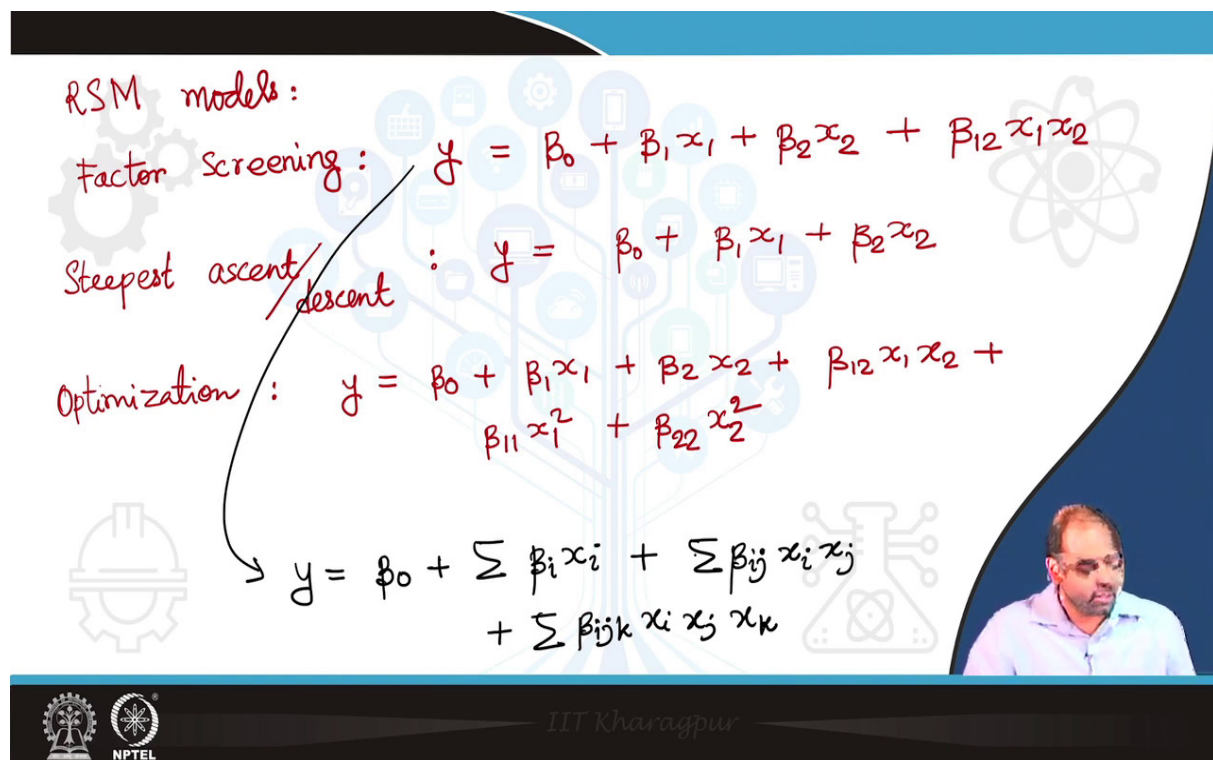 RSM models:
Factor Screening: y = β₀ + β₁x₁ + β₂x₂ + β₁₂x₁x₂
Steepest ascent/descent : y = β₀ + β₁x₁ + β₂x₂
Optimization: y = β₀ + β₁x₁ + β₂x₂ + β₁₂x₁x₂ +
β₁₁x₁² + β₂₂x₂²
y = β₀ + Σ βᵢxᵢ + Σ βᵢⱼ xᵢ xⱼ
+ Σ βᵢⱼₖ xᵢ xⱼ xₖ
IIT Kharagpur
NPTEL